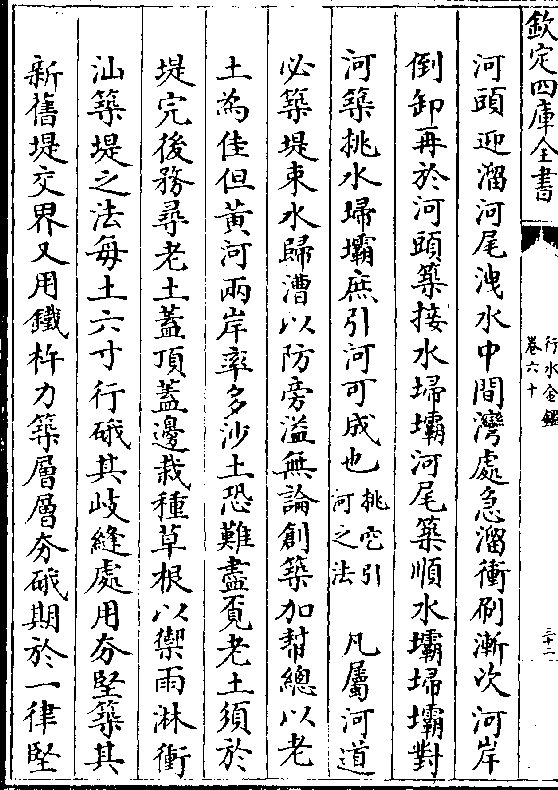 欽定四庫全書
行水金鑑
卷六十
三十二
河頭迎溜河尾洩水中間灣處急溜衝刷漸次河岸
倒卸再於河頭築接水埽壩河尾築順水壩埽壩對
河築挑水埽壩庶引河可成也挑空引河之法 凡屬河道
必築堤束水歸漕以防旁溢無論創築加幇總以老
土為佳但黃河兩岸率多沙土恐難盡覔老土須於
堤完後務尋老土蓋頂蓋邊栽種草根以禦雨淋衝
汕築堤之法每土六寸行硪其歧縫處用夯堅築其
新舊堤交界又用鐵杵力築層層夯硪期於一律堅